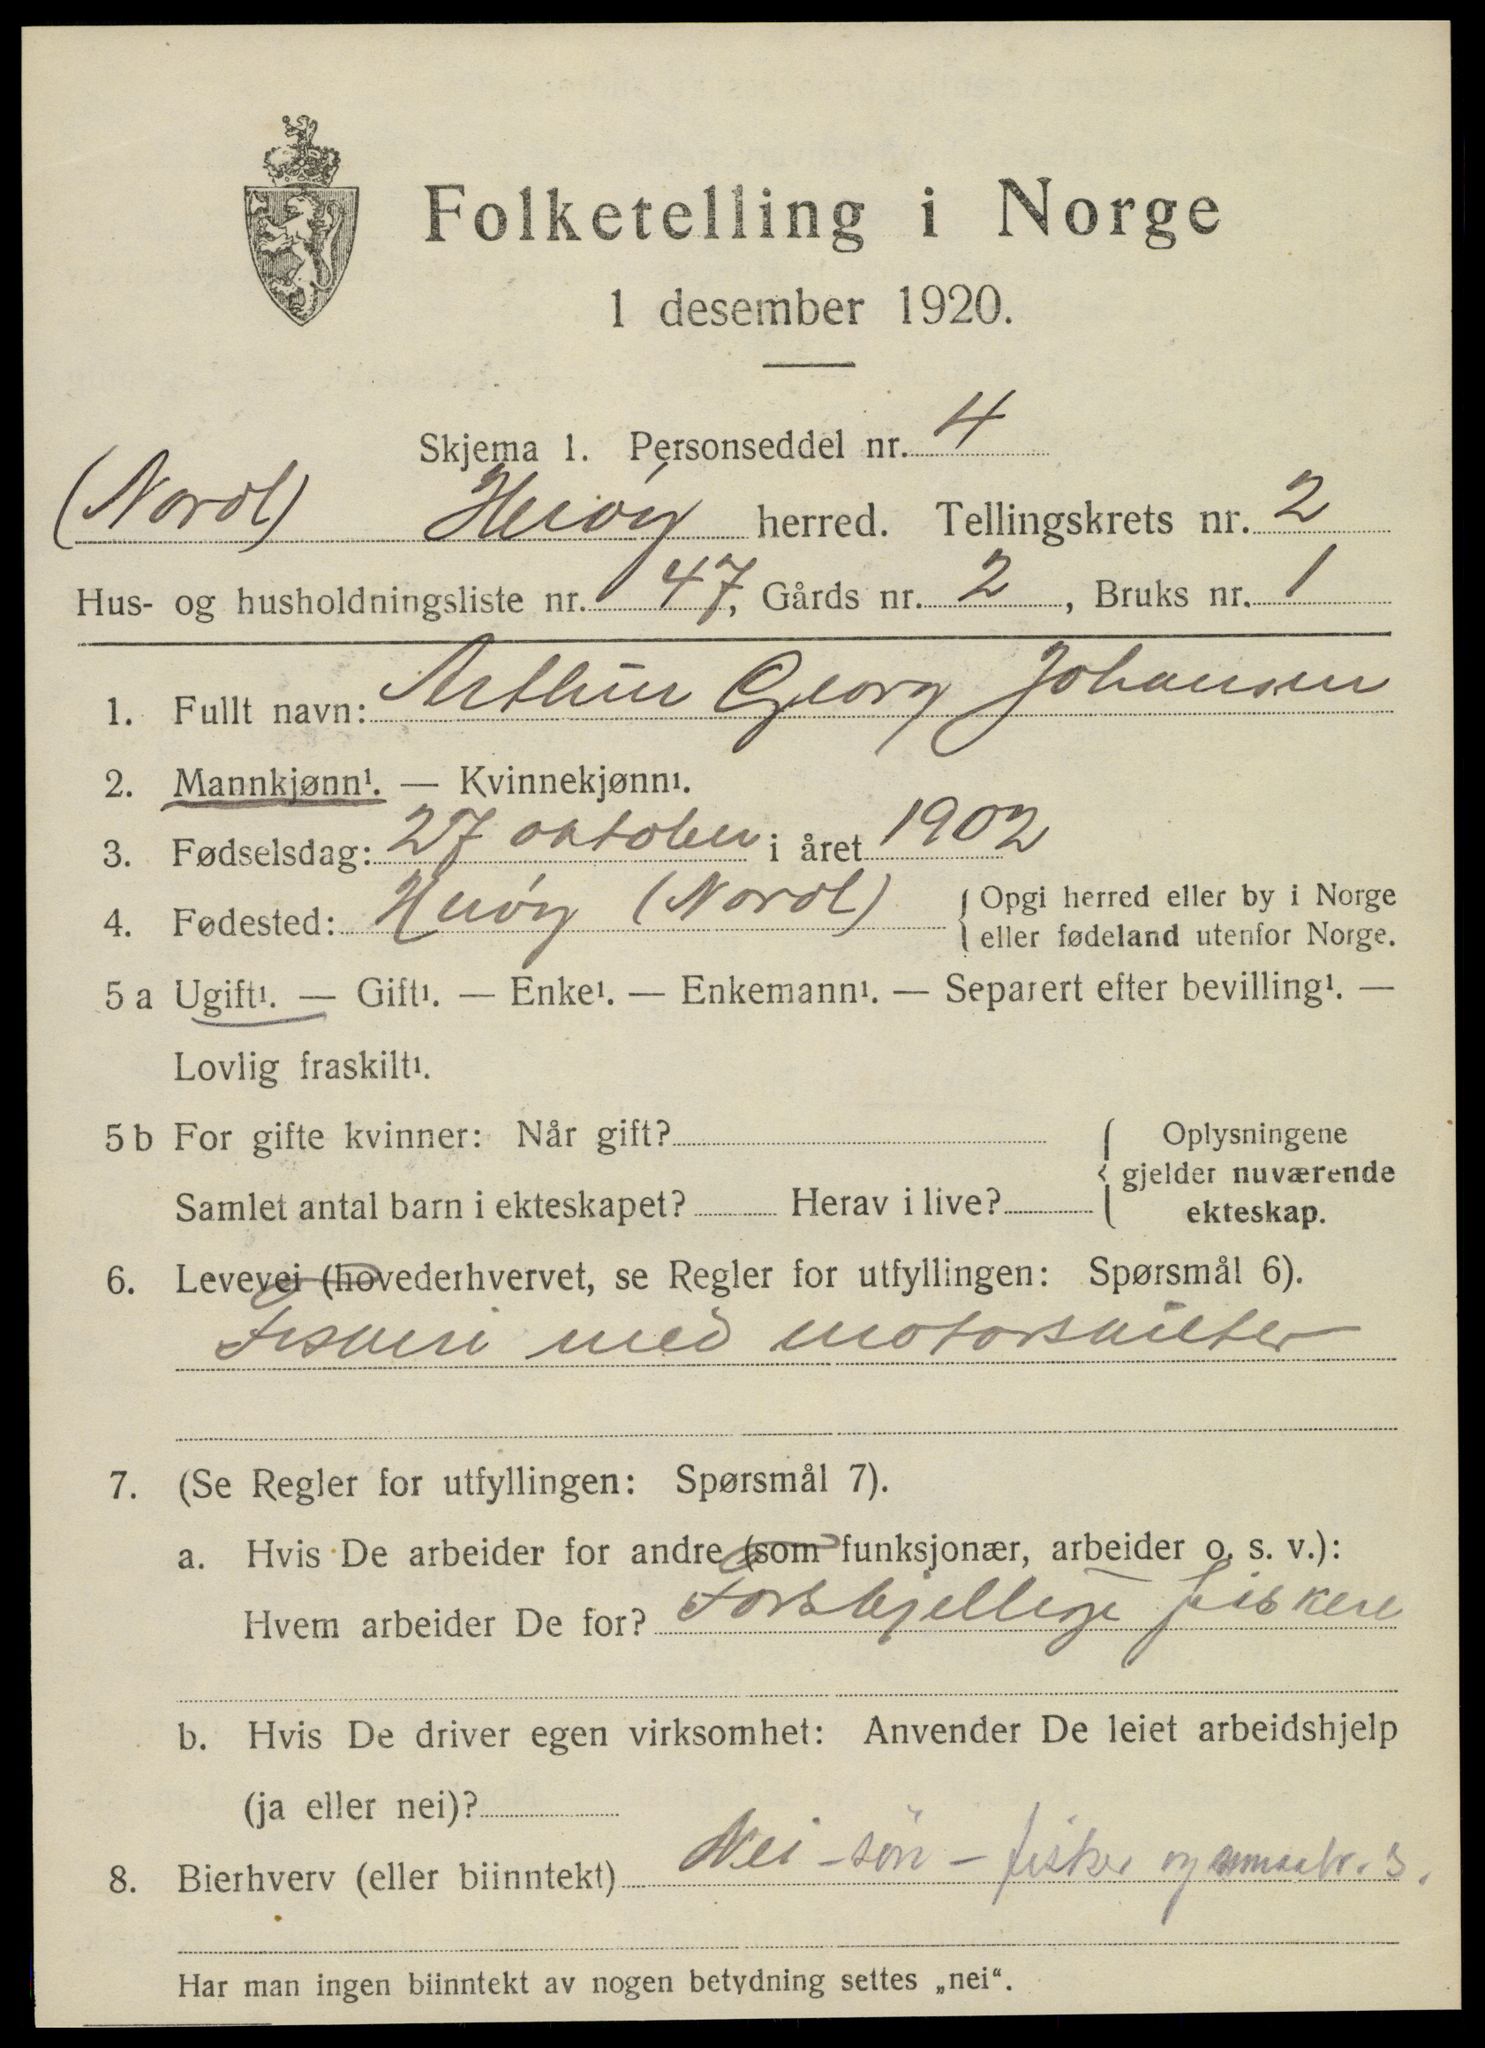 Folketelling i Norge
1 desember 1920.
Skjema 1. Personseddel nr. 4
(Nordl) Herøy herred. Tellingskrets nr. 2
Hus- og husholdningsliste nr. 47, Gårds nr. 2, Bruks nr. 1
1. Fullt navn: Arthur Georg Johansen
2. Mannkjønn¹. — Kvinnekjønn¹.
3. Fødselsdag: 27 oktober i året 1902
4. Fødested: Herøy (Nordl) { Opgi herred eller by i Norge
eller fødeland utenfor Norge.
5 a Ugift¹. — Gift¹. — Enke¹. — Enkemann¹. — Separert efter bevilling¹. —
Lovlig fraskilt¹.
5 b For gifte kvinner: Når gift? { Oplysningene
gjelder nuværende
Samlet antal barn i ekteskapet? Herav i live? ekteskap.
6. Levevei (hovederhvervet, se Regler for utfyllingen: Spørsmål 6).
Fiskeri med motorskøiter
7. (Se Regler for utfyllingen: Spørsmål 7).
a. Hvis De arbeider for andre (som funksjonær, arbeider o. s. v.):
Hvem arbeider De for? Forskjellige fiskere
b. Hvis De driver egen virksomhet: Anvender De leiet arbeidshjelp
(ja eller nei)?
8. Bierhverv (eller biinntekt) Nei - søn - fisker og smaabr. s.
Har man ingen biinntekt av nogen betydning settes „nei“.